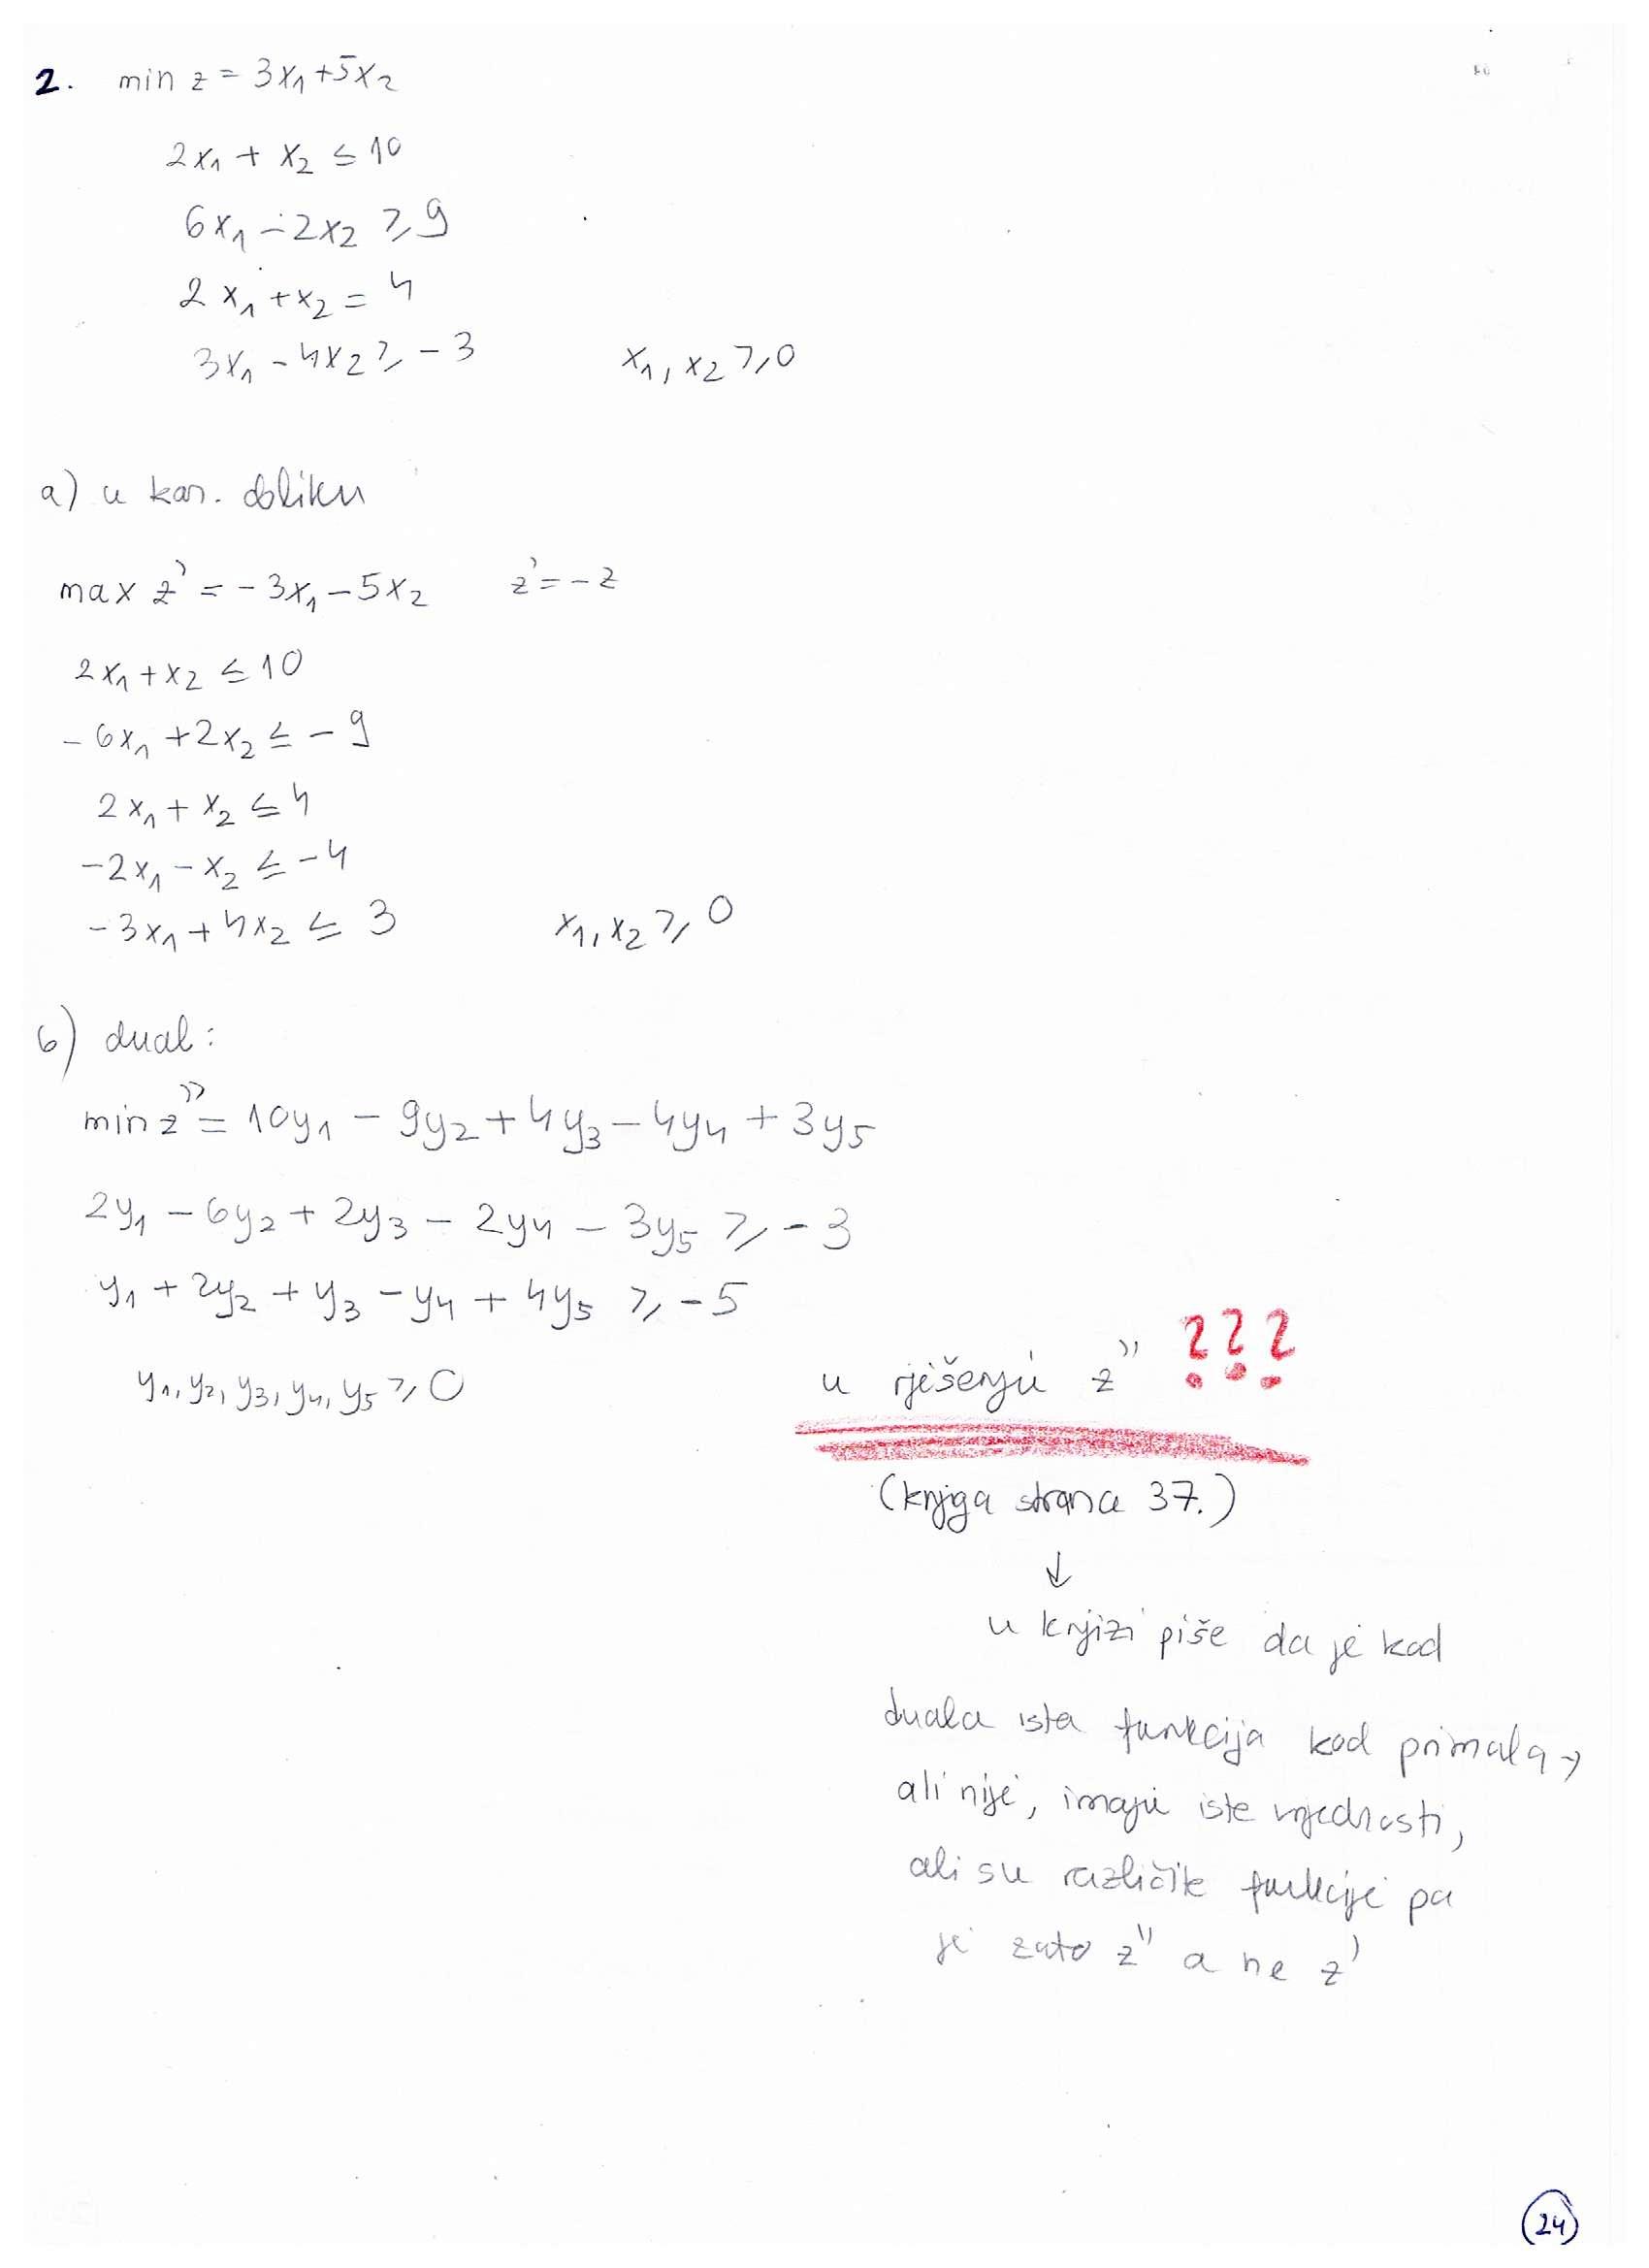 2. min z = 3x₁ + 5x₂
2x₁ + x₂ ≤ 10
6x₁ - 2x₂ ≥ 9
2x₁ + x₂ = 4
3x₁ - 4x₂ ≥ -3 x₁, x₂ ≥ 0
a) u kan. obliku
max z' = -3x₁ - 5x₂ z' = -z
2x₁ + x₂ ≤ 10
-6x₁ + 2x₂ ≤ -9
2x₁ + x₂ ≤ 4
-2x₁ - x₂ ≤ -4
-3x₁ + 4x₂ ≤ 3 x₁, x₂ ≥ 0
b) dual:
min z'' = 10y₁ - 9y₂ + 4y₃ - 4y₄ + 3y₅
2y₁ - 6y₂ + 2y₃ - 2y₄ - 3y₅ ≥ -3
y₁ + 2y₂ + y₃ - y₄ + 4y₅ ≥ -5
y₁, y₂, y₃, y₄, y₅ ≥ 0
u rješenju z'' ???
(knjiga strana 37.)
↓
u knjizi piše da je kod
duala ista funkcija kod primala →
ali nije, imaju iste vrijednosti,
ali su različite funkcije pa
je zato z'' a ne z'
24